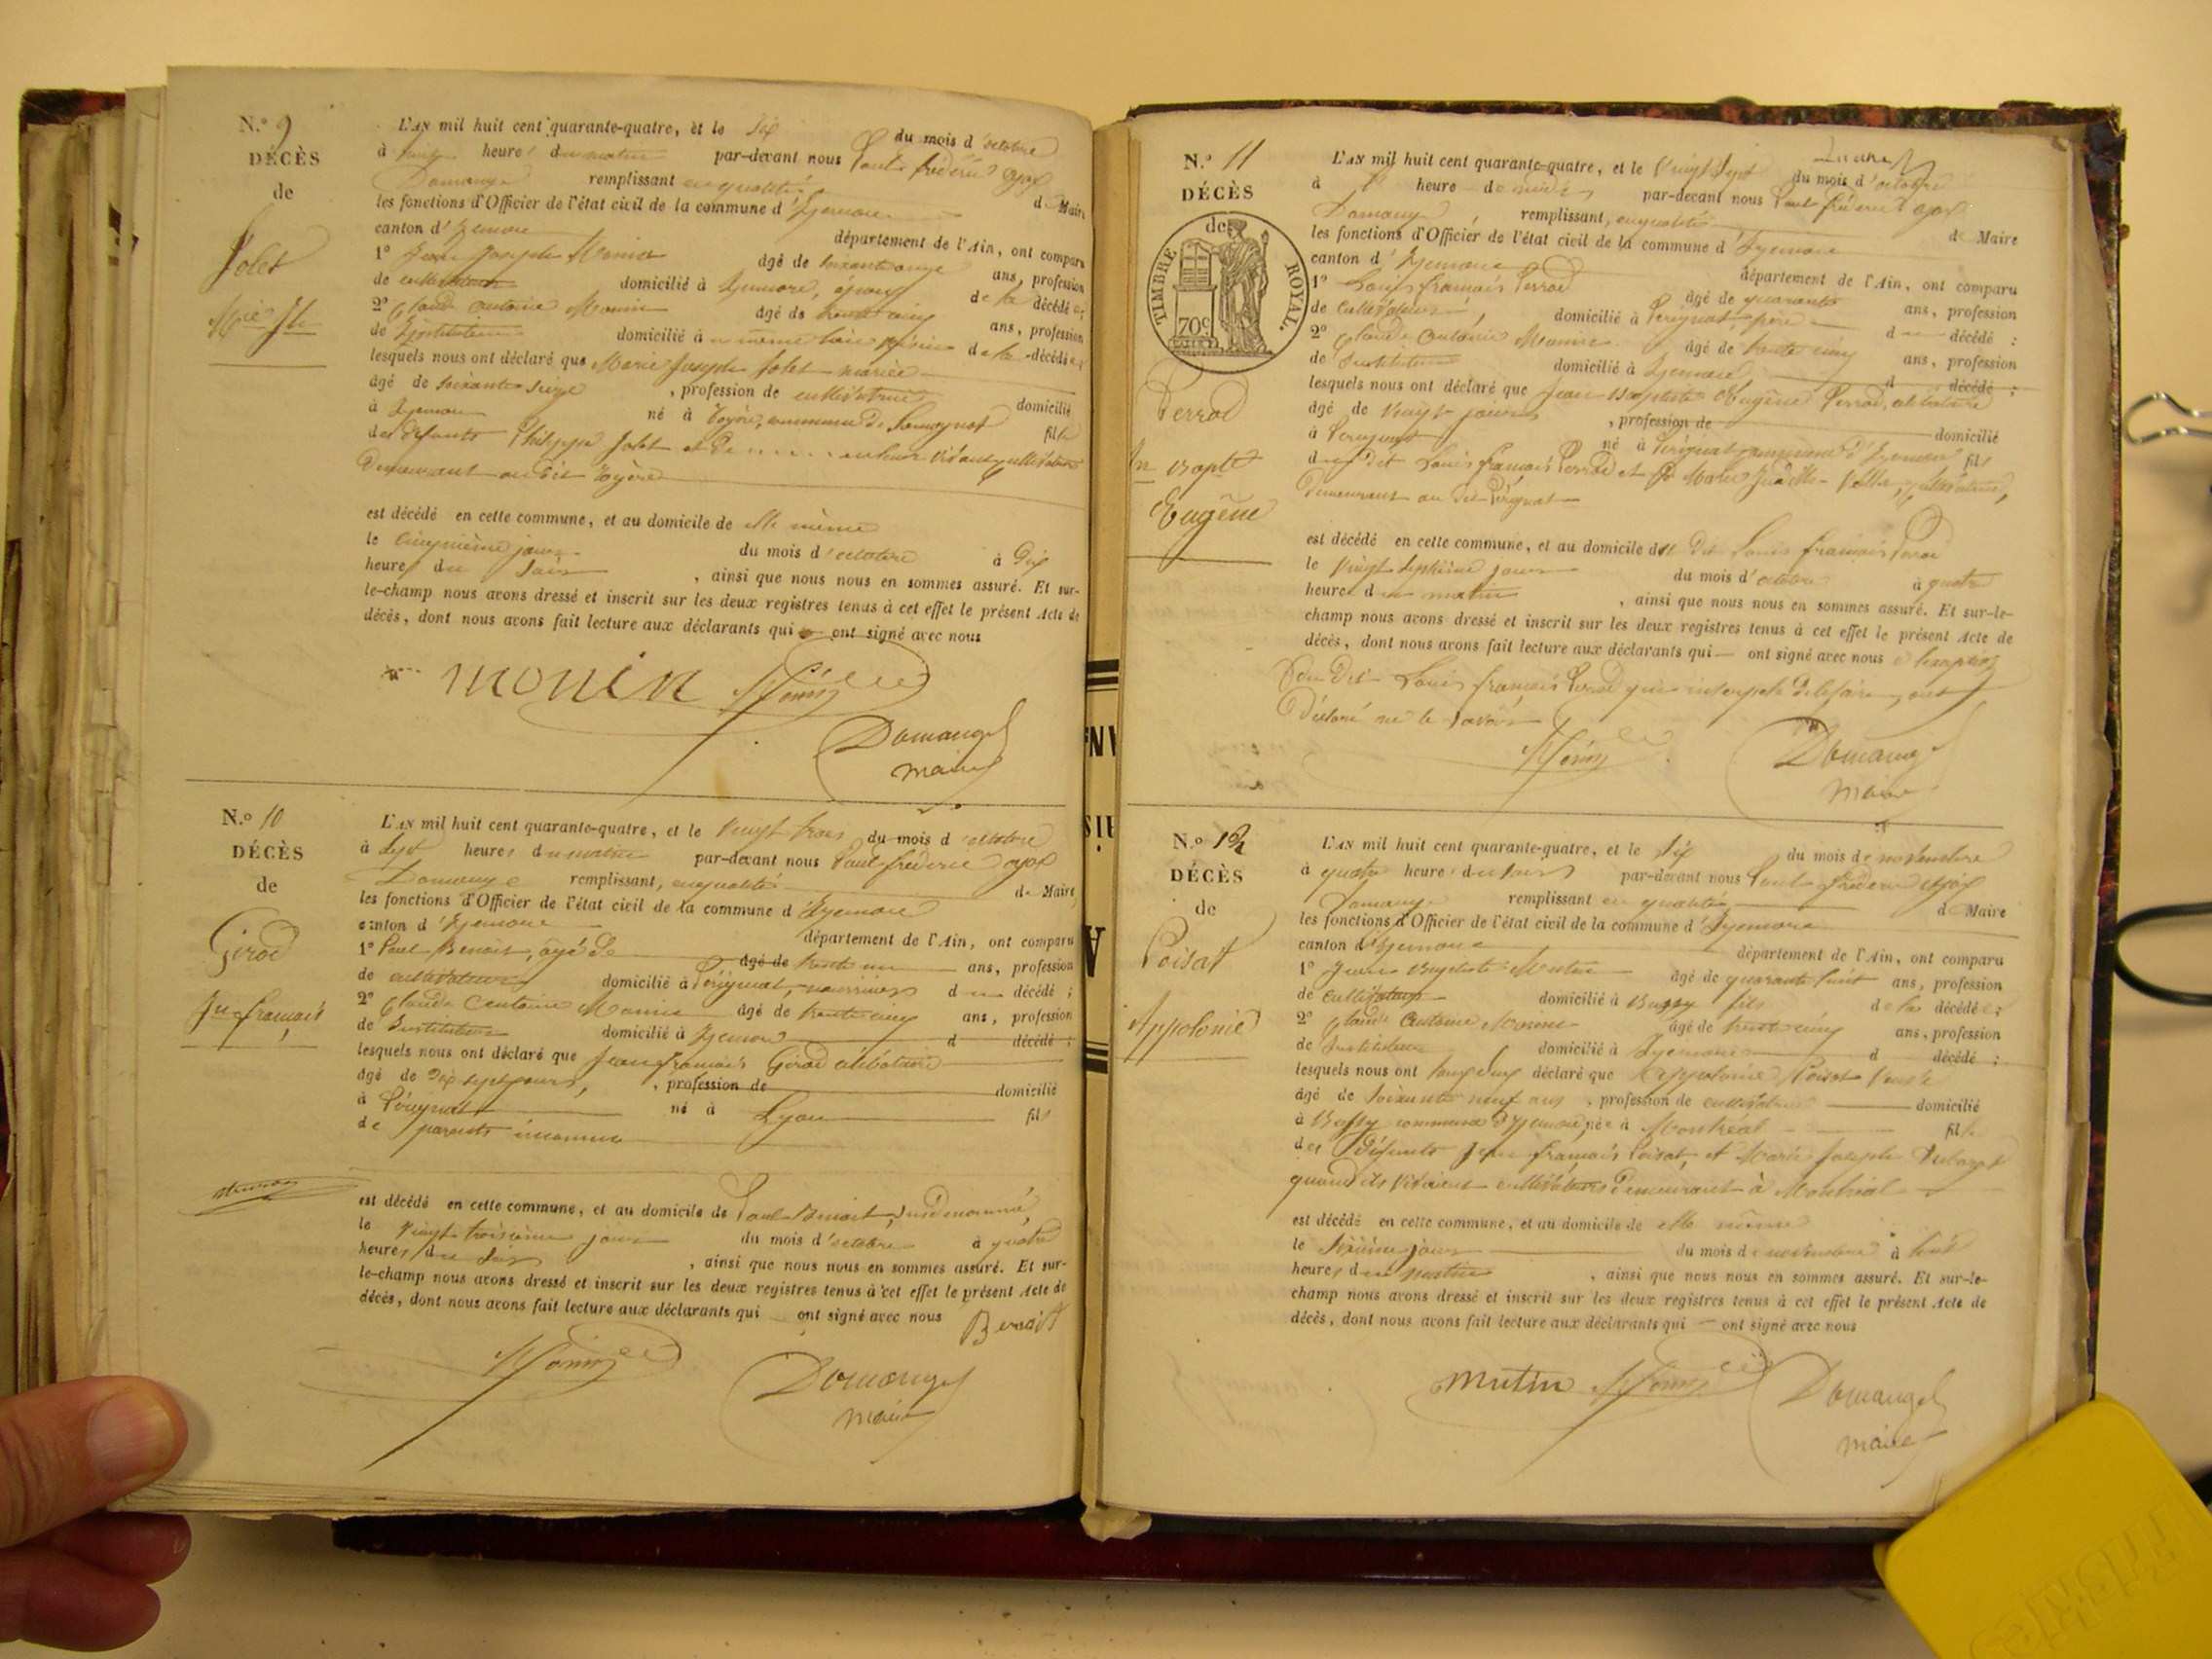 N.° 9
DÉCÈS
de
Jolet
Mie Jh
L'AN mil huit cent quarante-quatre, et le six du mois d'octobre
à huit heures du matin par-devant nous Paul frédéric ajax
Domange remplissant en qualité de Maire
les fonctions d'Officier de l'état civil de la commune d'Izernore
canton d'Izernore département de l'Ain, ont comparu
1° Jean Joseph Monin âgé de soixante onze ans, profession
de cultivateur domicilié à Izernore, époux de la décédée;
2° Claude antoine Monin âgé de trente cinq ans, profession
de Instituteur domicilié à même lieu de la décédée;
lesquels nous ont déclaré que Marie Joseph Jolet mariée
âgé de soixante seize, profession de cultivatrice domicilié
à Izernore né à Voyère, commune de Samognat fille
des défunts Philippe Jolet et de ...... en leur vivant cultivateurs
demeurant au dit Voyère
est décédé en cette commune, et au domicile de elle même
le cinquième jour du mois d'octobre à dix
heures du soir, ainsi que nous nous en sommes assuré. Et sur-
le-champ nous avons dressé et inscrit sur les deux registres tenus à cet effet le présent Acte de
décès, dont nous avons fait lecture aux déclarants qui ont signé avec nous
monin Monin
Domange
maire
N.° 10
DÉCÈS
de
Girod
Jn françois
L'AN mil huit cent quarante-quatre, et le vingt trois du mois d'octobre
à sept heures du matin par-devant nous Paul frédéric ajax
Domange remplissant, en qualité de Maire,
les fonctions d'Officier de l'état civil de la commune d'Izernore
canton d'Izernore département de l'Ain, ont comparu
1° Paul Benoit, âgé de âgé de trente un ans, profession
de cultivateur domicilié à Pérignat, nourricier du décédé;
2° Claude Antoine Monin âgé de trente cinq ans, profession
de Instituteur domicilié à Izernore d décédé;
lesquels nous ont déclaré que Jean françois Girod célibataire
âgé de dix sept jours, profession de domicilié
à Pérignat né à Lyon fils
de parents inconnus
est décédé en cette commune, et au domicile de Paul Benoit, susdénommé,
le vingt troisième jour du mois d'octobre à quatre
heures du soir, ainsi que nous nous en sommes assuré. Et sur-
le-champ nous avons dressé et inscrit sur les deux registres tenus à cet effet le présent Acte de
décès, dont nous avons fait lecture aux déclarants qui ont signé avec nous Benoit
Monin
Domange
maire
N.° 11
DÉCÈS
de
TIMBRE ROYAL.
70c
Perrod
Jn Bapte
Eugène
L'AN mil huit cent quarante-quatre, et le vingt sept du mois d'octobre
à heure de midi par-devant nous Paul frédéric ajax
Domange remplissant, en qualité de Maire
les fonctions d'Officier de l'état civil de la commune d'Izernore
canton d'Izernore département de l'Ain, ont comparu
1° Louis françois Perrod âgé de quarante ans, profession
de cultivateur, domicilié à Pérignat, père du décédé:
2° Claude Antoine Monin âgé de trente cinq ans, profession
de Instituteur domicilié à Izernore, d décédé;
lesquels nous ont déclaré que Jean Baptiste Eugène Perrod, célibataire
âgé de vingt jours, profession de domicilié
à Pérignat né à Pérignat commune d'Izernore fils
du dit Louis françois Perrod et de Marie Judith cultivateurs,
demeurant au dit Pérignat
est décédé en cette commune, et au domicile du dit Louis françois Perrod
le vingt septième jour du mois d'octobre à quatre
heures du matin, ainsi que nous nous en sommes assuré. Et sur-le-
champ nous avons dressé et inscrit sur les deux registres tenus à cet effet le présent Acte de
décès, dont nous avons fait lecture aux déclarants qui ont signé avec nous à l'exception
du dit Louis françois Perrod qui de le faire, a
déclaré ne le savoir
Monin
Domange
Maire
N.° 12
DÉCÈS
de
Poisat
Appolonie
L'AN mil huit cent quarante-quatre, et le six du mois de novembre
à quatre heures du soir par-devant nous Paul frédéric ajax
Domange remplissant en qualité de Maire
les fonctions d'Officier de l'état civil de la commune d'Izernore
canton d'Izernore département de l'Ain, ont comparu
1° Jean Baptiste Mutin âgé de quarante huit ans, profession
de cultivateur domicilié à Bussy fils de la décédée;
2° Claude Antoine Monin âgé de trente cinq ans, profession
de Instituteur domicilié à Izernore d décédé;
lesquels nous ont déclaré que Appolonie Poisat veuve
âgé de soixante neuf ans, profession de cultivatrice domicilié
à Bussy commune d'Izernore, née à Montréal fille
des défunts Jean françois Poisat, et Marie Joseph
quand ils vivaient cultivateurs demeurant à Montréal
est décédé en cette commune, et au domicile de elle même
le sixième jour du mois de novembre à huit
heures du matin, ainsi que nous nous en sommes assuré. Et sur-le-
champ nous avons dressé et inscrit sur les deux registres tenus à cet effet le présent Acte de
décès, dont nous avons fait lecture aux déclarants qui ont signé avec nous
mutin Monin
Domange
maire